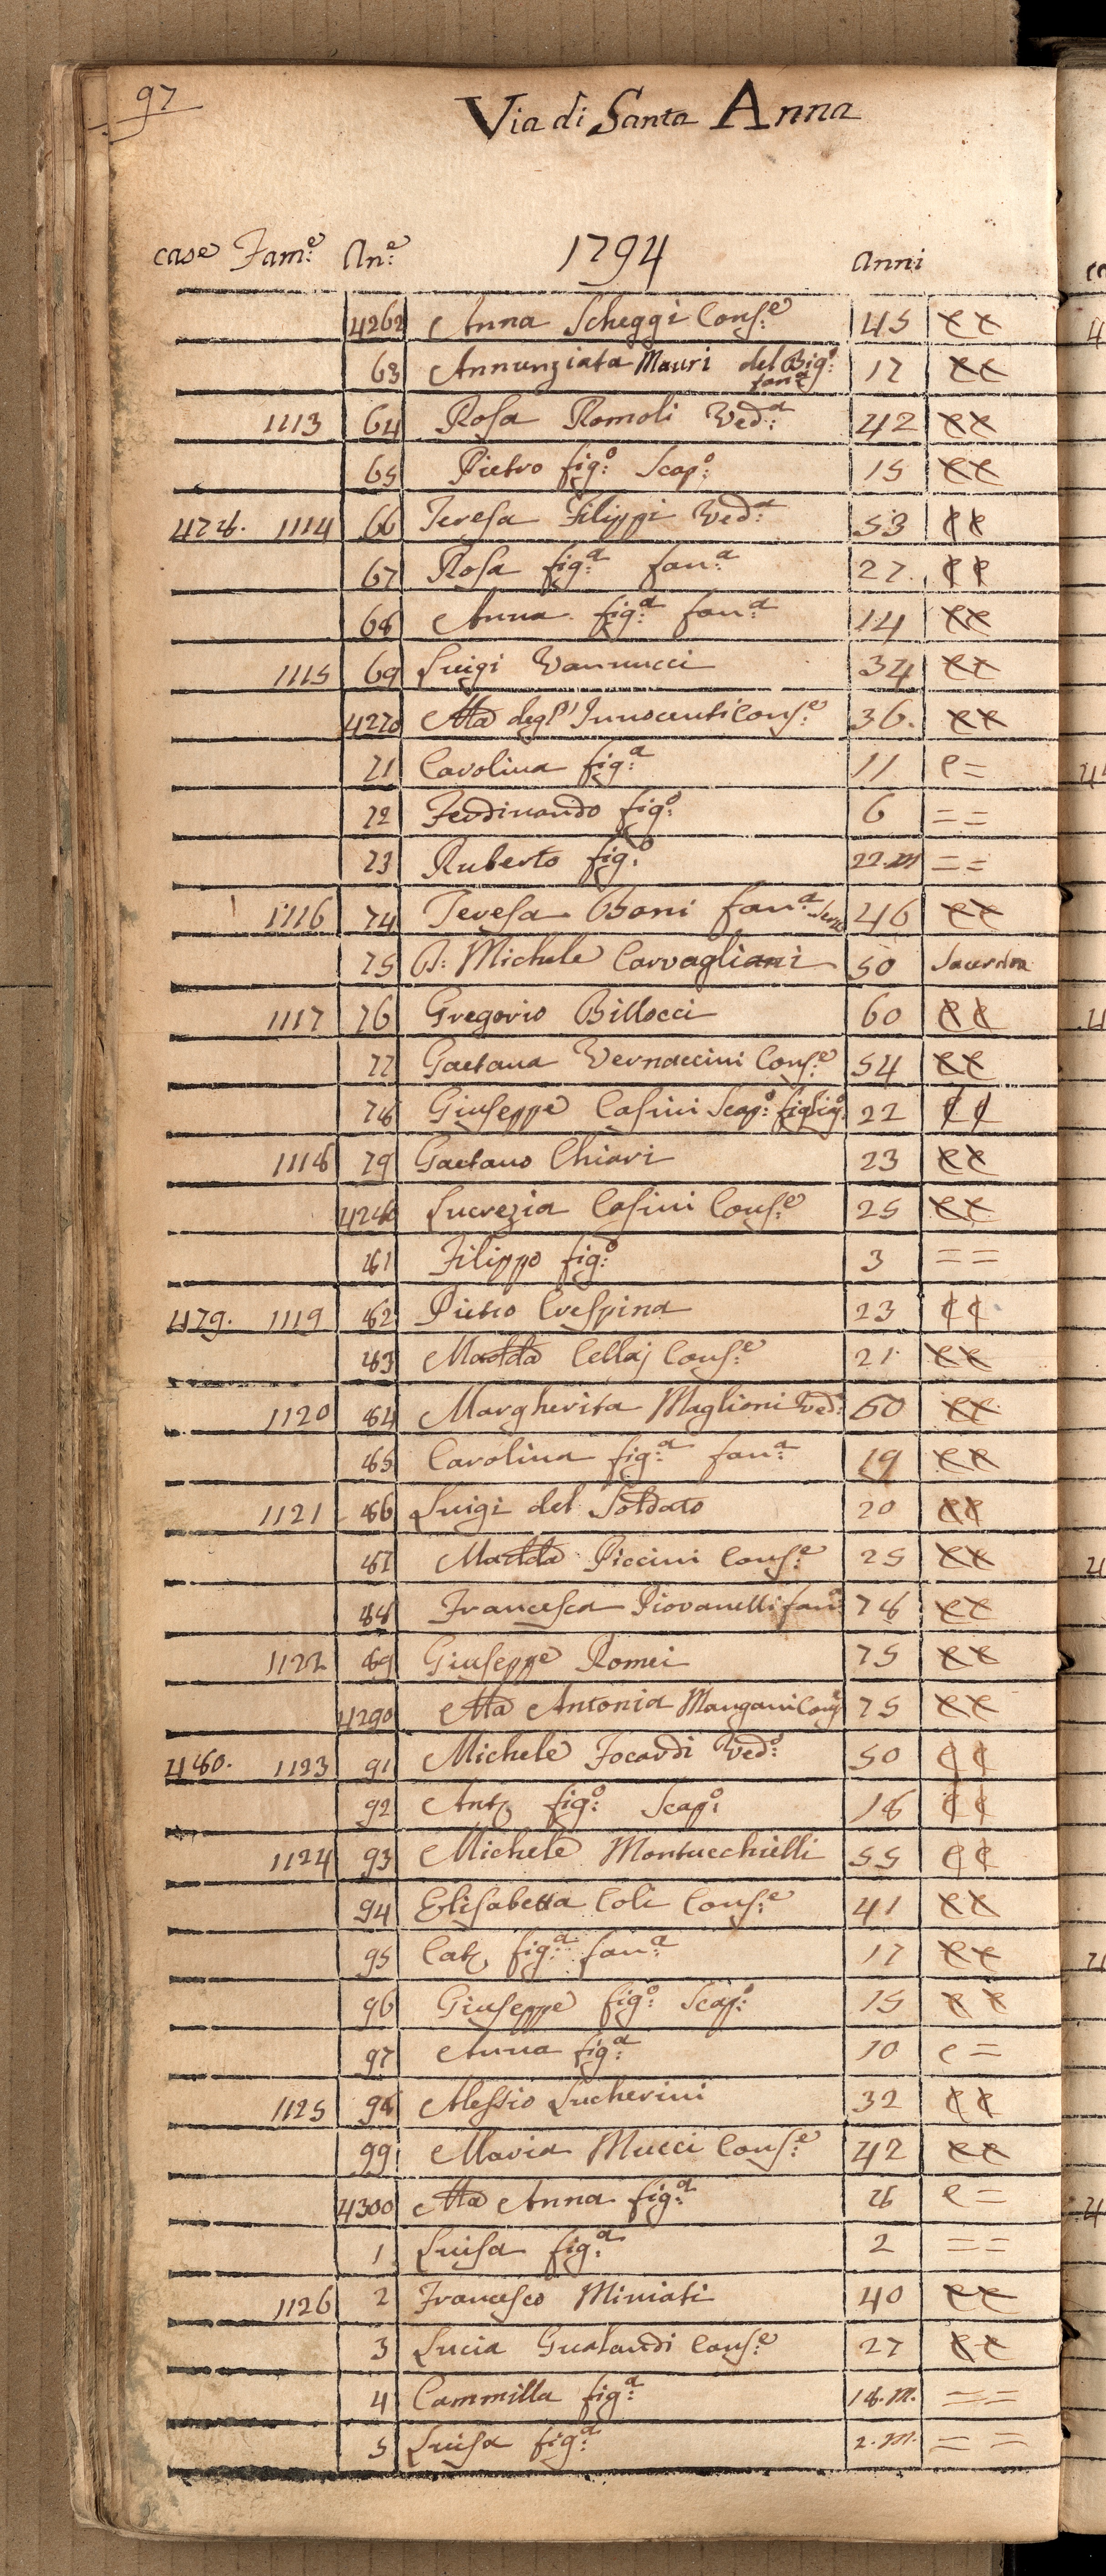 97
Via di Santa Anna
case Fam:e An:e 1794 Anni
4262 Anna Scheggi Cons:e 45
63 Annunziata Mauri del Big:o fan:a 17
1113 64 Rosa Romoli Ved:a 42
65 Pietro fig:o Scap:o 15
478. 1114 66 Teresa Filippi Ved:a 53
67 Rosa fig:a fan:a 27.
68 Anna fig:a fan:a 14
1115 69 Luigi Vannucci 34
4270 Ma degl' Innocenti Cons:e 36.
71 Carolina fig:a 11 e =
72 Ferdinando fig:o 6 = =
73 Ruberto fig:o 22. m = =
1116 74 Teresa Boni fan:a Serva 46
75 P: Michele Corvagliani 50
1117 76 Gregorio Billocci 60
77 Gaetana Vernaccini Cons:e 54
78 Giuseppe Casini Scap:o figlig:o 22
1118 79 Gaetano Chiari 23
4280 Lucrezia Casini Cons:e 25
81 Filippo fig:o 3 = =
479. 1119 82 Pietro Crespina 23
83 Madda Cellaj Cons:e 21
1120 84 Margherita Maglioni Ved: 60
85 Carolina fig:a fan:a 19
1121 86 Luigi del Soldato 20
87 Madda Piccini Cons:e 25
88 Francesca Piovanelli fan: 78
1122 89 Giuseppe Romei 75
4290 Ma Antonia Mangani Cons 75
480. 1123 91 Michele Focardi Ved:o 50
92 Ant. fig:o Scap:o 18
1124 93 Michele Montucchielli 55
94 Elisabetta Coli Cons:e 41
95 Cat. fig:a fan:a 17
96 Giuseppe fig:o Scap:o 15
97 Anna fig:a 10 e =
1125 98 Alessio Lucherini 32
99 Maria Mucci Cons:e 42
4300 Ma Anna fig:a 8 e =
1 Luisa fig:a 2 = =
1126 2 Francesco Miniati 40
3 Lucia Gualandi Cons:e 27
4 Cammilla fig:a 18. m. = =
5 Luisa fig:a 2. m. = =